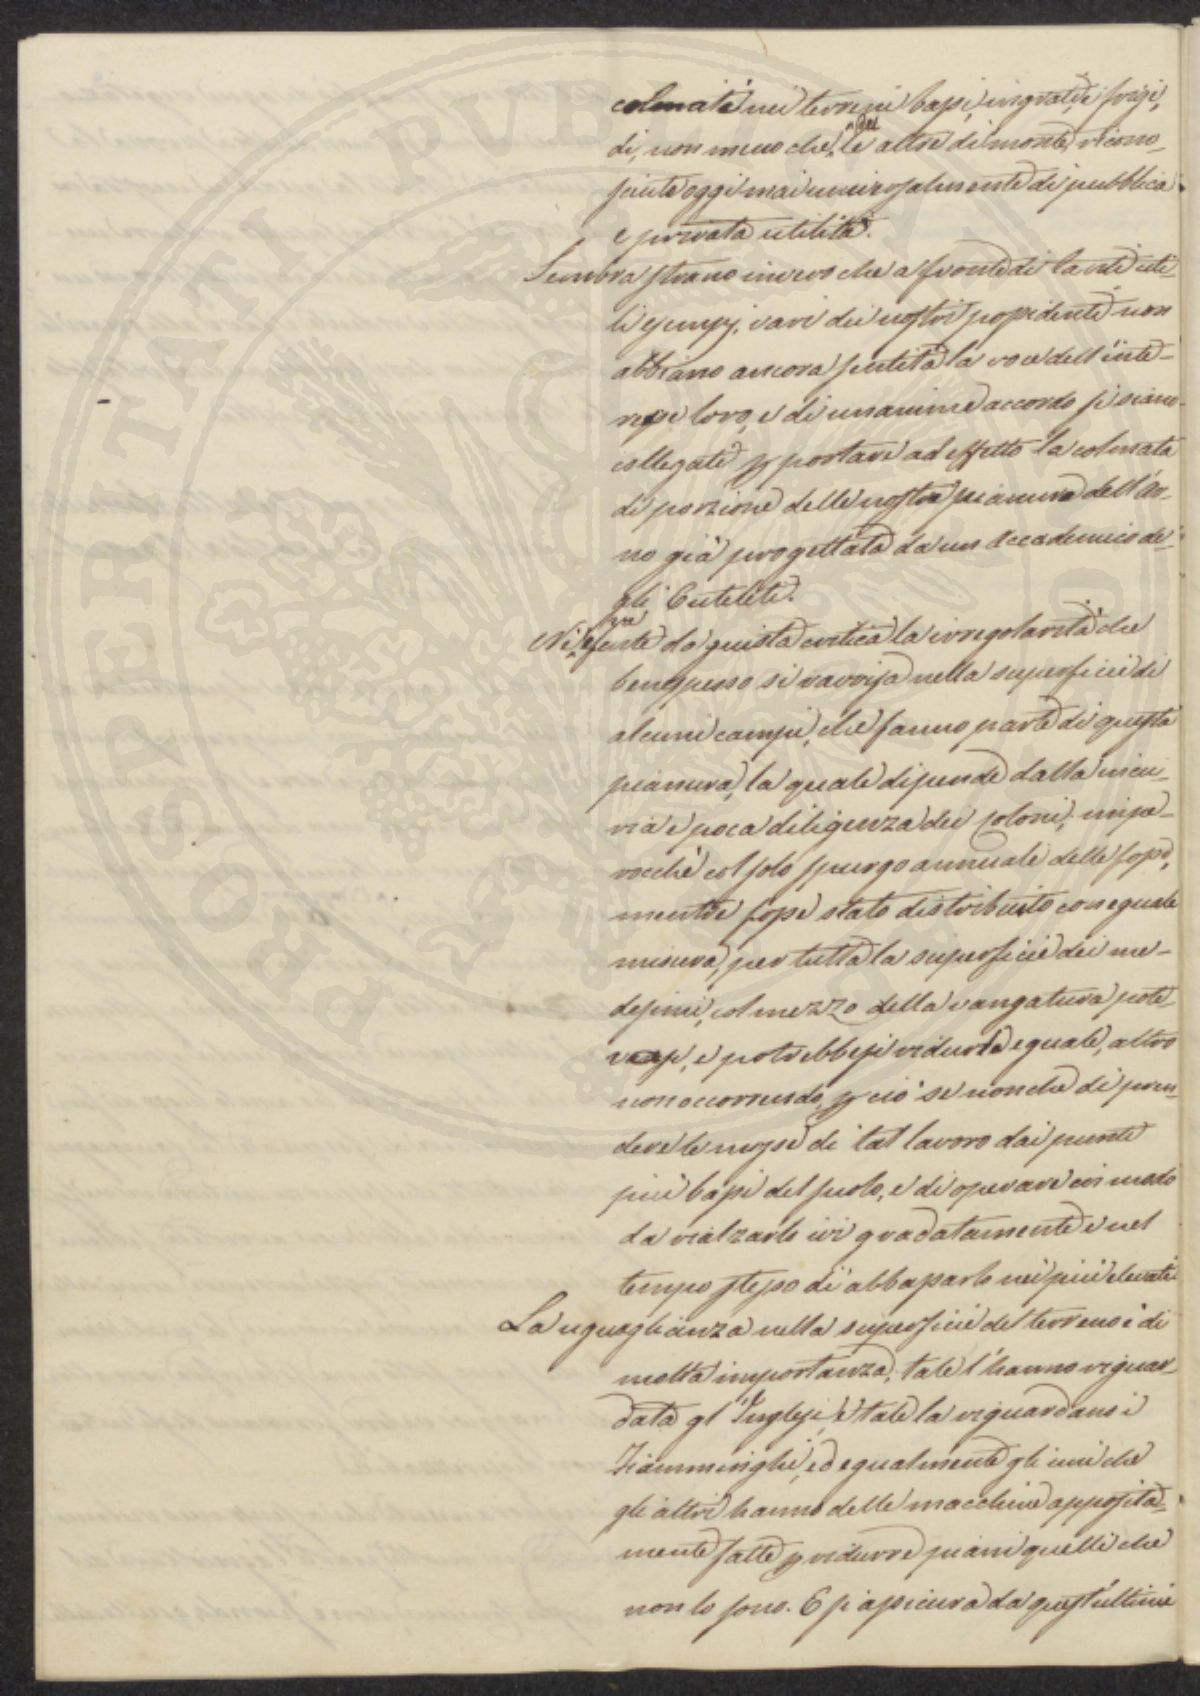 colmate nei terreni bassi, ingrati, e frigi,
di, non meno che, del^le altre di monte, ricono-
sciute oggi mai universalmente di pubblica
e privata utilità.
Sembra strano invero che a fronte di tanti uti-
li esempj, varj dei nostri possidenti non
abbiano ancora sentita la voce dell'inte-
resse loro, e di unanime accordo si siano
collegati p portare ad effetto la colmata
di porzione della nostra pianura dell'Ar-
no già progettata da un Accademico de-
gli Euteleti.
Nè esente da giusta critica la irregolarità che
benespesso si ravvisa nella superficie di
alcuni campi, che fanno parte di questa
pianura, la quale dipende dalla incu-
ria e poca diligenza dei coloni, impe-
rocchè col solo spurgo annuale delle fosse,
mentre fosse stato distribuito con eguale
misura, per tutta la superficie dei me-
desimi, col mezzo della vangatura pote-
vasi, e potrebbesi ridurre eguale, altro
non occorrendo p ciò se non che di pren-
dere le mosse di tal lavoro dai punti
più bassi del suolo, e di operare in modo
da rialzarlo ivi gradatamente e nel
tempo stesso di abbassarlo nei più elevati
La uguaglianza nella superficie del terreno è di
molta importanza, tale l'hanno riguar-
data gl'Inglesi, e tale la riguardano i
Fiamminghi, ed egualmente gli uni che
gli altri hanno delle macchine apposita-
mente fatte p ridurre piani quelli che
non lo sono. E si assicura da quest'ultimi
PROSPERITATI PUBLICAE